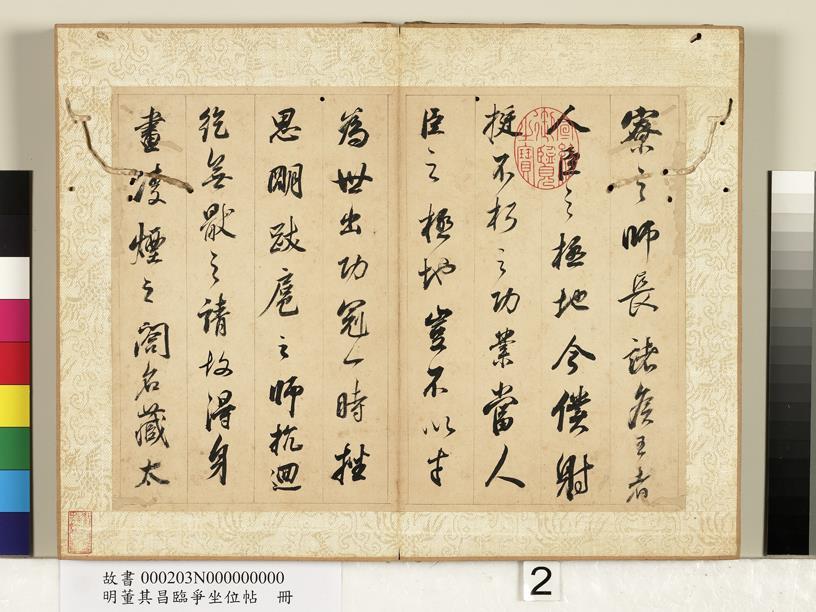 寮之師長諸侯王者
人臣之極地今僕射
挺不朽之功業當人
臣之極地豈不以才
為世出功冠一時挫
思明跋扈之師抗迴
紇無猒之請故得身
畫凌煙之閣名藏太
嘉慶御覽之寶
故書 000203N000000000
明董其昌臨爭坐位帖 冊
2